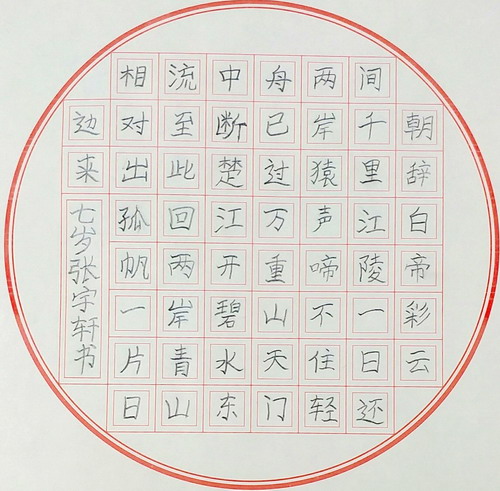 朝辞白帝彩云
间千里江陵一日还
两岸猿声啼不住轻
舟已过万重山天门
中断楚江开碧水东
流至此回两岸青山
相对出孤帆一片日
边来
七岁张宇轩书